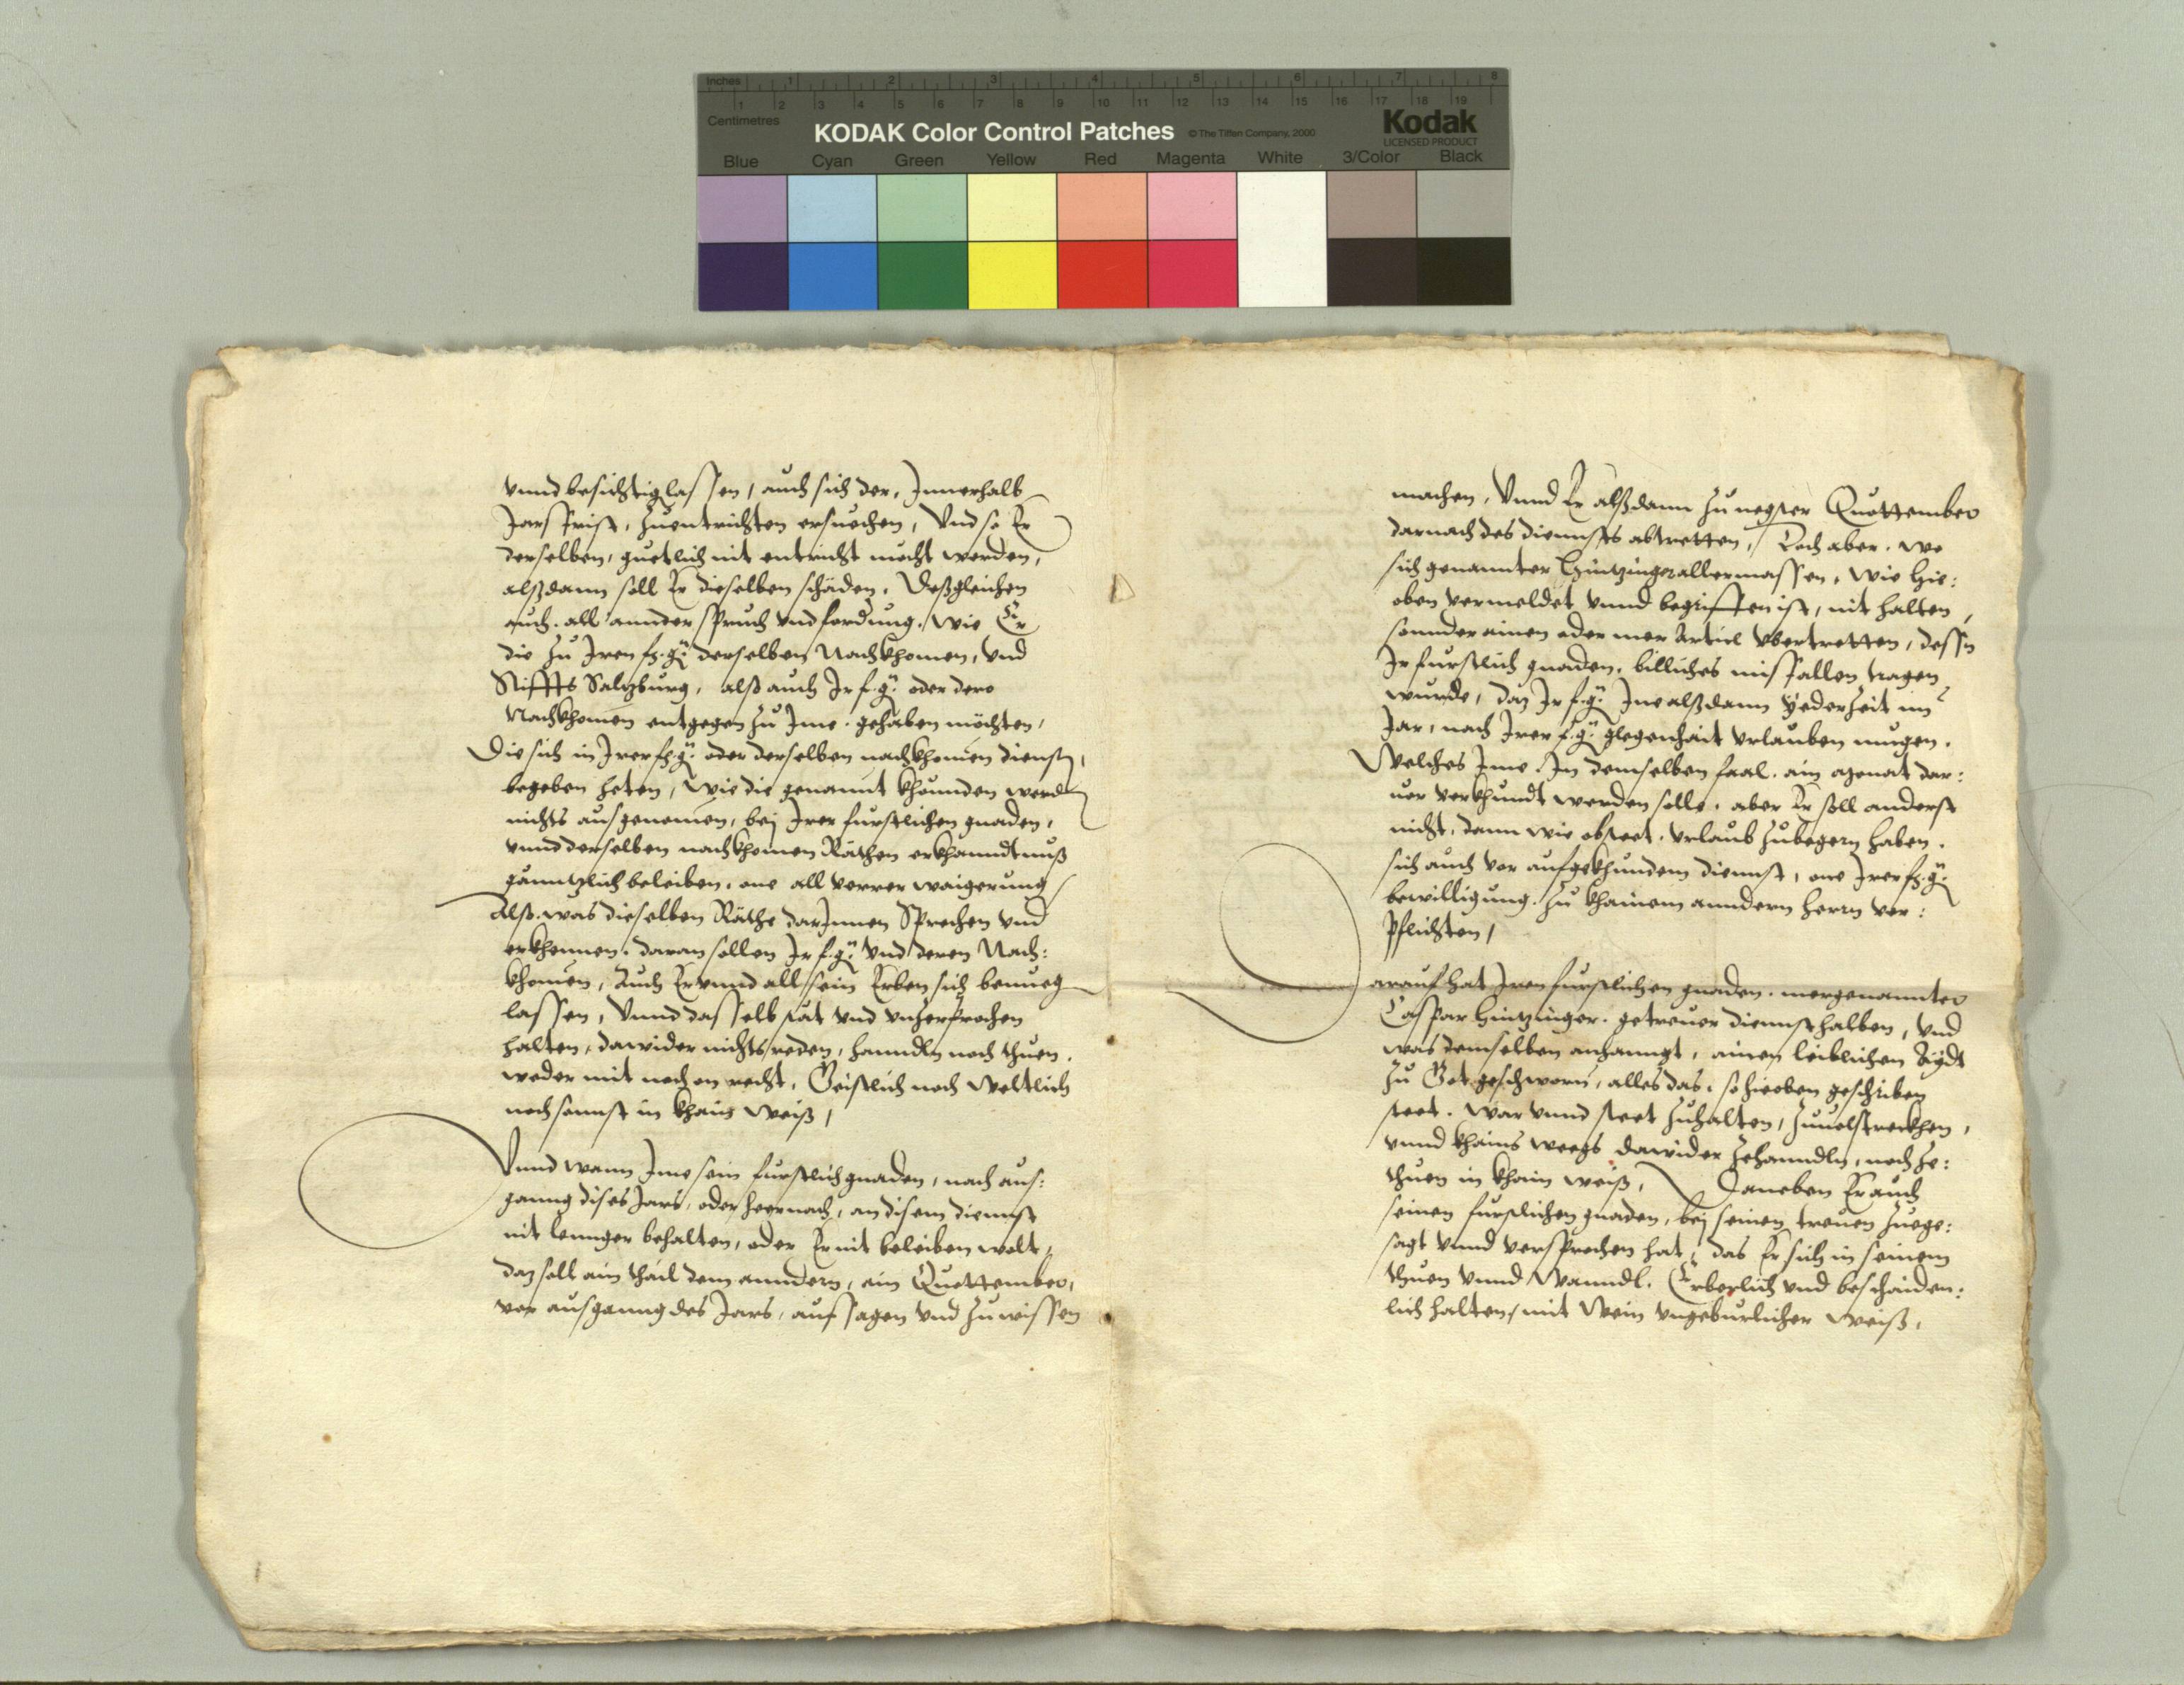 Inches 1 2 3 4 5 6 7 8
1 2 3 4 5 6 7 8 9 10 11 12 13 14 15 16 17 18 19
Centimetres
KODAK Color Control Patches © The Tiffen Company, 2000 Kodak
LICENSED PRODUCT
Blue Cyan Green Yellow Red Magenta White 3/Color Black
vnnd besichtig lassen, auch sich der, Innerhalb
Jars frist, zuentrichten ersuechen, Vnd so Er
derselben, guetlich nit entricht mocht werden,
alßdann soll Er dieselben schäden, Deßgleichen
auch all annder spruch vnd fordung, wie Er
die zu Iren fr. g. derselben Nachkhomen, vnd
Stiffts Saltzburg, alß auch Ir f. g. oder dero
Nachkhomen entgegen zu Ime gehaben möchten,
Die sich in Irer fr. g. oder derselben nachkhomen dienst,
begeben heten, wie die genannt khunnden werdn
nichts ausgenomen, bej Irer furstlichen gnaden,
vnnd derselben nachkhomen Räthen erkhanndtnuß
ganntzlich beleiben, one all verrer waigerung
Alß was dieselben Räthe darInnen Sprechen vnd
erkhennen, daran sollen Ir f. g. vnd deren Nach:
khomen, Auch Er vnnd all sein Erben sich benueg
lassen, Vnnd dasselb stät vnd vnzerprochen
halten, dawider nichts reden, hanndln noch thuen,
weder mit noch on recht, Geistlich noch Weltlich
noch sonnst in khain weiß,
Vnnd wann Ime sein furstlich gnaden, nach aus:
ganng dises Jars, oder heernach, an disem diennst
nit lennger behalten, oder Er nit beleiben wolt,
daz soll ain thail dem anndern, ain Quottember,
vor ausganng des Jars, aufsagen vnd zuwissen
machen, Vnnd Er alßdann zu negster Quottember
darnach des diennsts abtretten, Doch aber, wo
sich genannter Hintzinger allermassen, wie hie:
oben vermeldet vnnd begriffen ist, nit halten,
sonnder ainen oder mer Articl vbertretten, dessn
Ir furstlich gnaden, billiches missfallen tragen
wurde, daz Ir f. g. Ine alßdann yederzeit im
Jar, nach Irer f. g. glegenhait vrlauben mugen.
Welches Ime In demselben faal, ain monat dar:
uor verkhundt werden solle, aber Er soll anderst
nicht, dann wie obsteet, vrlaub zubegern haben,
sich auch vor aufgekhundem diennst, one Irer fr. g.
bewilligung, zu khainem anndern herrn ver:
pflichten,
Darauf hat Iren furstlichen gnaden, mergenannter
Caspar Hintzinger, getreuer diennst halben, vnd
was demselben anhanngt, ainen leiblichen Aydt
zu Got geschworn, alles das, so hieoben geschriben
steet, war vnnd steet zuhalten, zuuolstreckhen,
vnnd khains weegs dawider zehanndln, noch ze:
thuen in khain weiß, Daneben Er auch
seinen furstlichen gnaden, bej seinen treuen zuege:
sagt vnnd versprochen hat, das Er sich in seinem
thuen vnnd Wanndl, Erberlich vnd beschaiden:
lich halten, mit Wein vngeburlicher weiß,